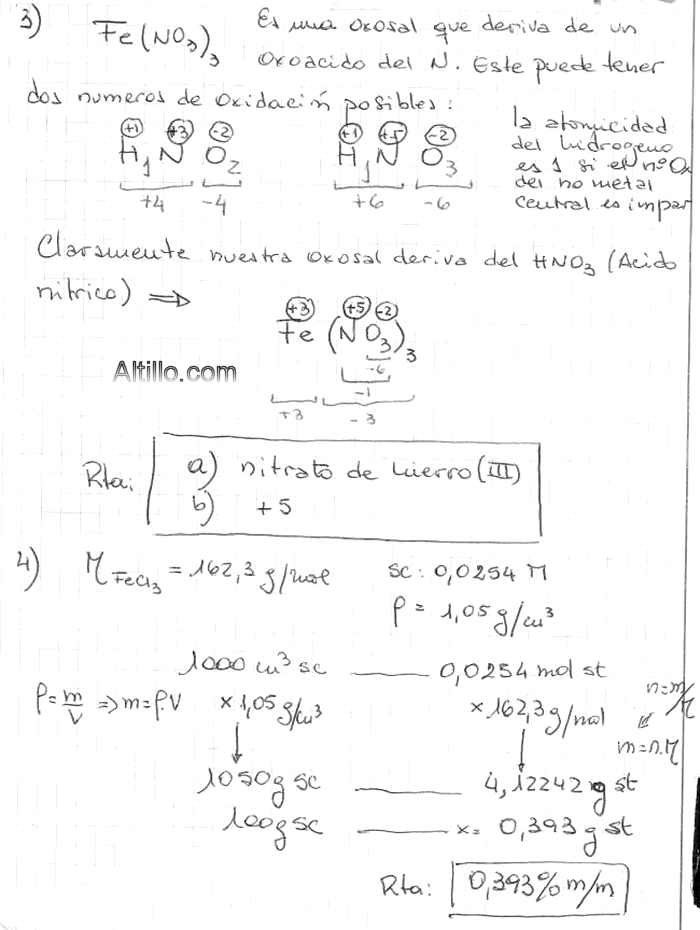 3) Fe(NO3)3 Es una oxosal que deriva de un
oxoacido del N. Este puede tener
dos numeros de oxidación posibles:
+1 +3 -2
H1 N O2
+4 -4
+1 +5 -2
H1 N O3
+6 -6
la atomicidad
del hidrogeno
es 1 si el nº Ox
del no metal
central es impar
Claramente nuestra oxosal deriva del HNO3 (Acido
nitrico) ⇒
+3 +5 -2
Fe (NO3)3
-6
-1
+3 -3
Altillo.com
Rta: a) nitrato de hierro (III)
b) +5
4) M FeCl3 = 162,3 g/mol sc: 0,0254 M
ρ = 1,05 g/cm³
1000 cm³ sc —— 0,0254 mol st
ρ = m/V ⇒ m = ρ.V × 1,05 g/cm³ × 162,3 g/mol n = m/M
m = n.M
1050 g sc —— 4,12242 g st
100 g sc —— x = 0,393 g st
Rta: 0,393% m/m